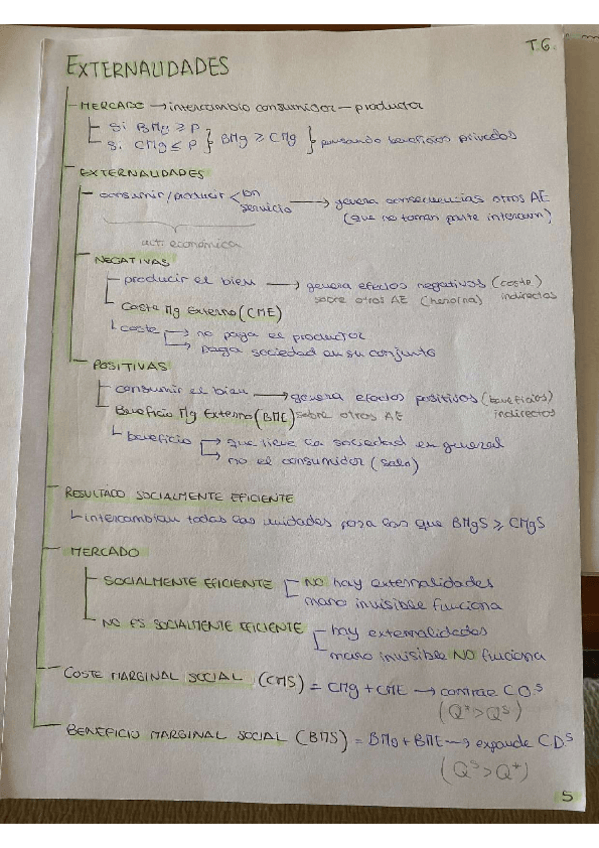 T.6.
EXTERNALIDADES
MERCADO → intercambio consumidor – productor
Si BMg ≥ P
Si CMg ≤ P } BMg ≥ CMg } pensando beneficios privados
EXTERNALIDADES
consumir/producir < bn
servicio → genera consecuencias otros AE
(que no toman parte intercam)
act. económica
NEGATIVAS
producir el bien → genera efectos negativos (coste)
sobre otros AE indirectos
Coste Mg Externo (CME)
coste → no paga el productor
→ paga sociedad en su conjunto
POSITIVAS
consumir el bien → genera efectos positivos (beneficios)
Beneficio Mg Externo (BME) sobre otros AE indirectos
beneficio → que tiene la sociedad en general
→ no el consumidor (solo)
RESULTADO SOCIALMENTE EFICIENTE
intercambian todas las unidades para las que BMgS ≥ CMgS
MERCADO
SOCIALMENTE EFICIENTE NO hay externalidades
mano invisible funciona
NO ES SOCIALMENTE EFICIENTE hay externalidades
mano invisible NO funciona
COSTE MARGINAL SOCIAL (CMS) = CMg + CME → contrae C.O.S
(Q* > Qˢ)
BENEFICIO MARGINAL SOCIAL (BMS) = BMg + BME → expande C.D.S
(Qˢ > Q*)
5